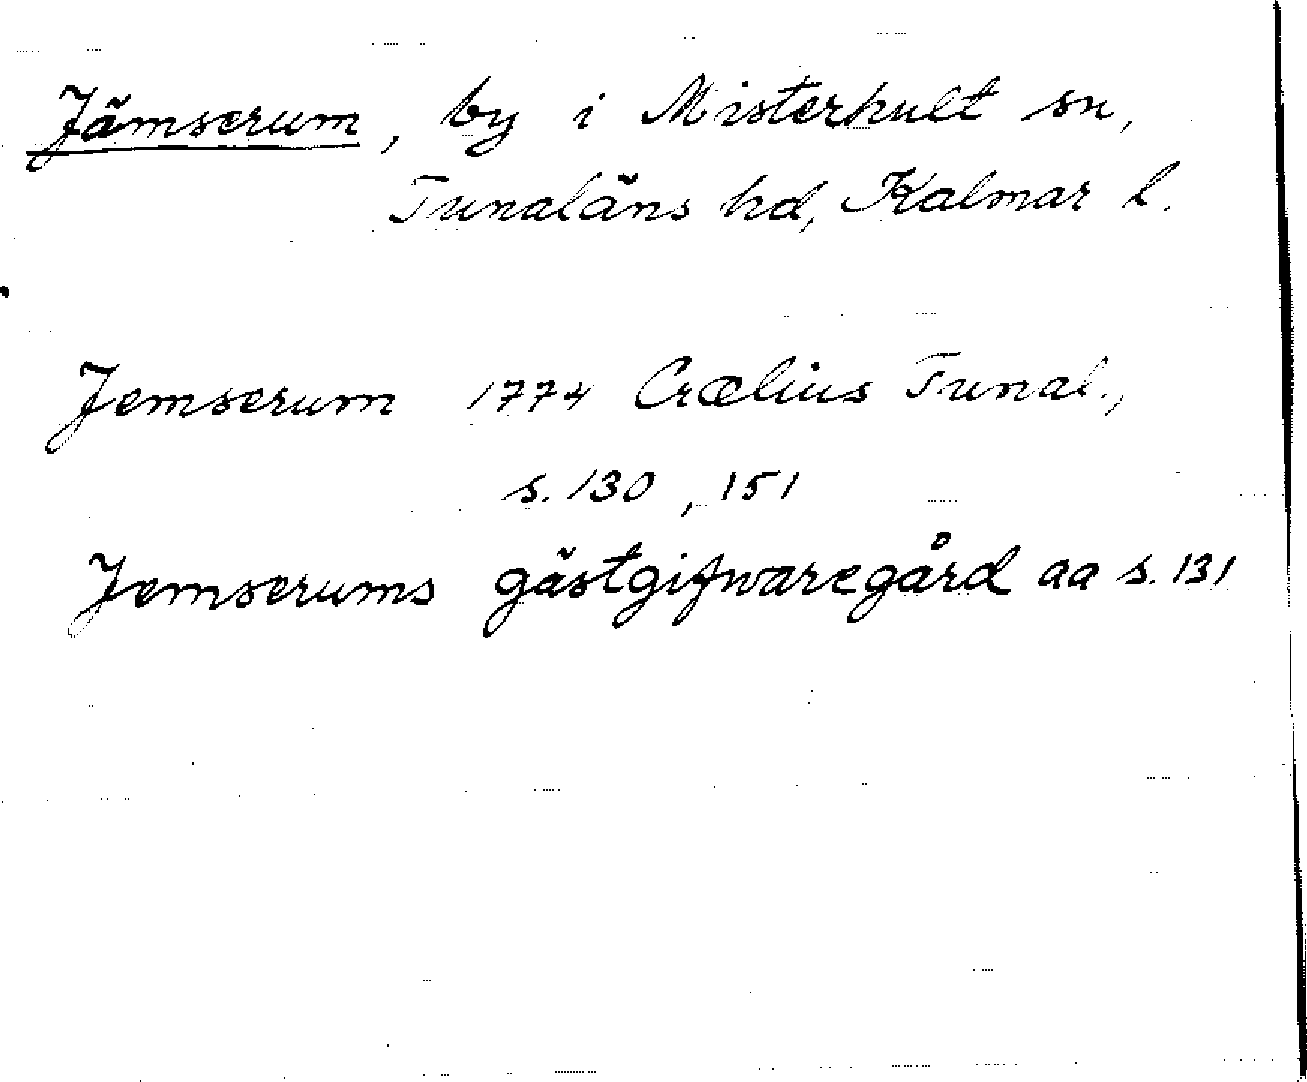 Jämserum, by i Misterhult sn,
Tunaläns hd, Kalmar l.
Jemserum 1774 Crælius Tunal.,
s. 130, 151
Jemserums gästgifwaregård aa s. 131